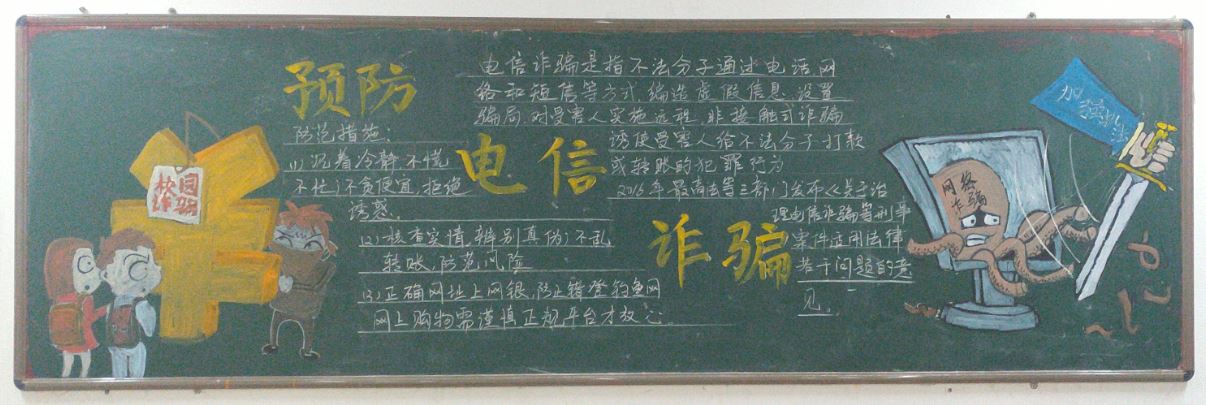 预防
电信
诈骗
电信诈骗是指不法分子通过电话网
络和短信等方式,编造虚假信息,设置
骗局,对受害人实施远程、非接触式诈骗
诱使受害人给不法分子打款
或转账的犯罪行为
2016年最高法等三部门发布《关于治
理电信诈骗等刑事
案件适用法律
若干问题的意
见。
防范措施:
(1)沉着冷静,不慌
不忙,不贪便宜,拒绝
诱惑。
(2)核查实情,辨别真伪,不乱
转账,防范风险
(3)正确网址上网银,防止错登钓鱼网
网上购物需谨慎正规平台才放心。
校园
诈骗
网络
诈骗
加强